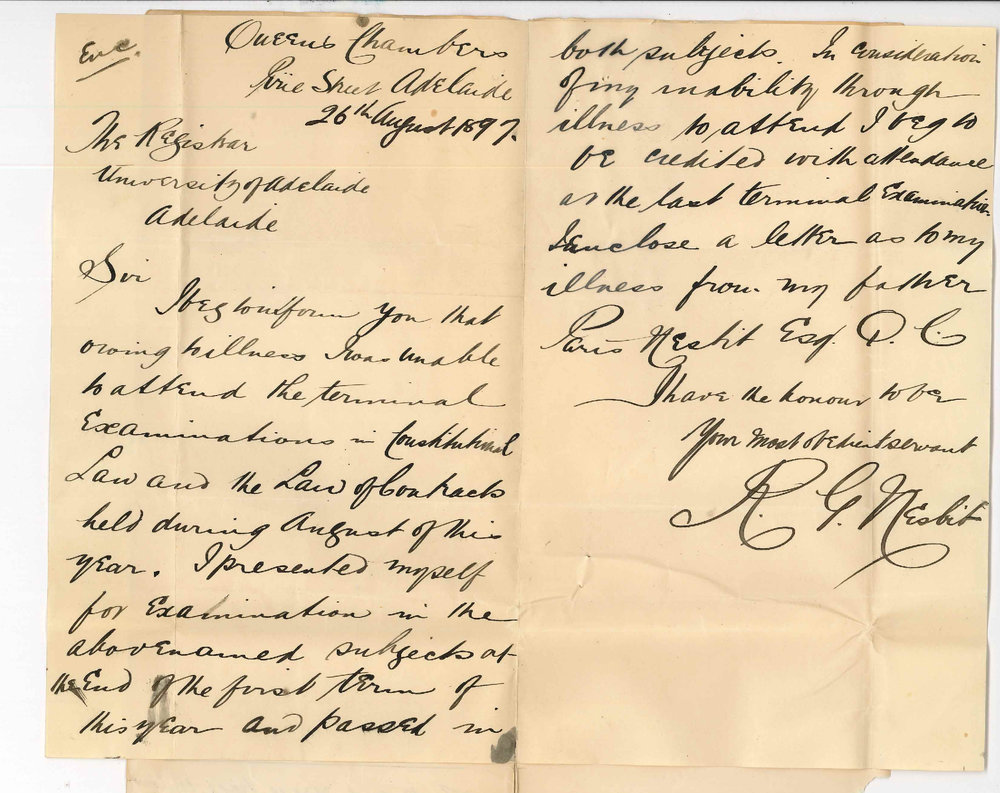 Enc.
Queen's Chambers
Pirie Street Adelaide
26th August 1897.
The Registrar
University of Adelaide
Adelaide
Sir
I beg to inform you that
owing to illness I was unable
to attend the terminal
Examinations in Constitutional
Law and the Law of Contracts
held during August of this
year. I presented myself
for Examination in the
abovenamed subjects at
the End of the first term of
this year and passed in
both subjects. In consideration
of my inability through
illness to attend I beg to
be credited with attendance
at the last terminal Examination.
I enclose a letter as to my
illness from my father
Paris Nesbit Esq. Q. C.
I have the honour to be
Your most obedient servant
R. G. Nesbit